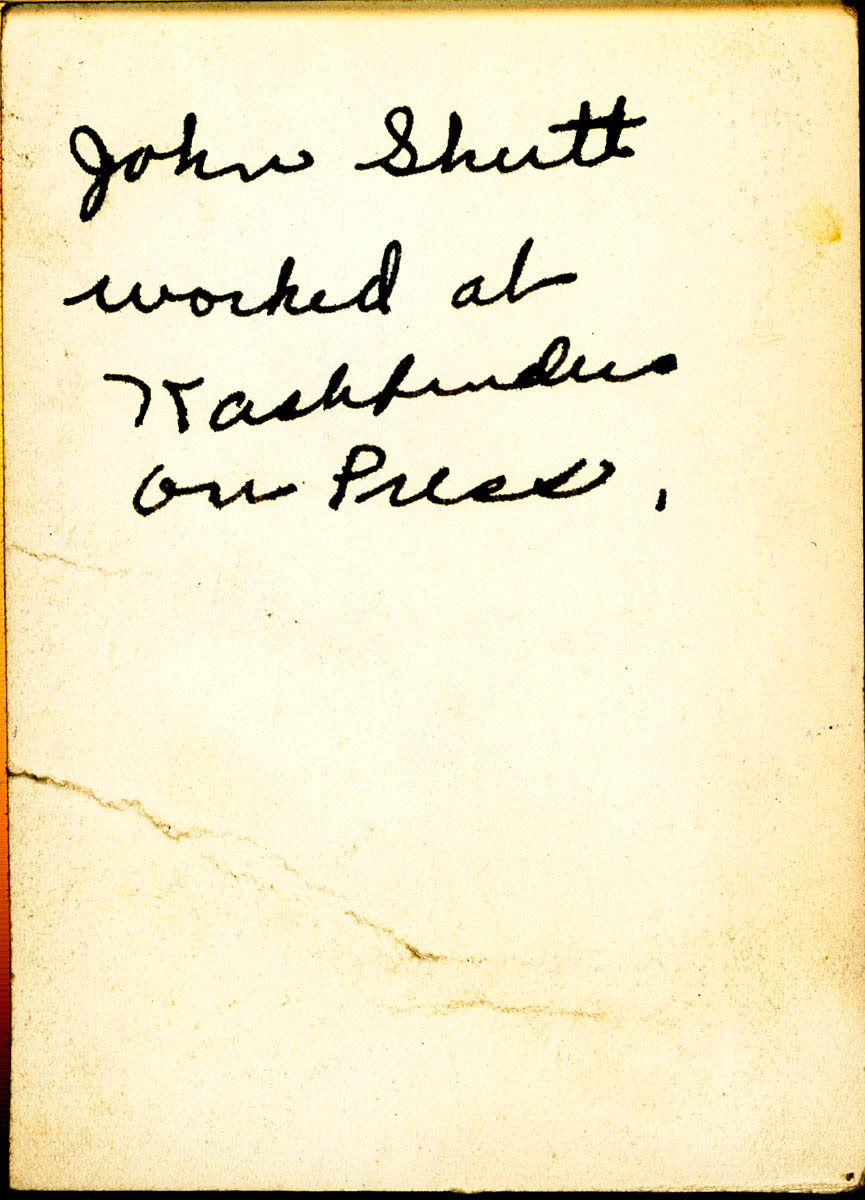 John Shutt
worked at
Kashfinders
on Press.